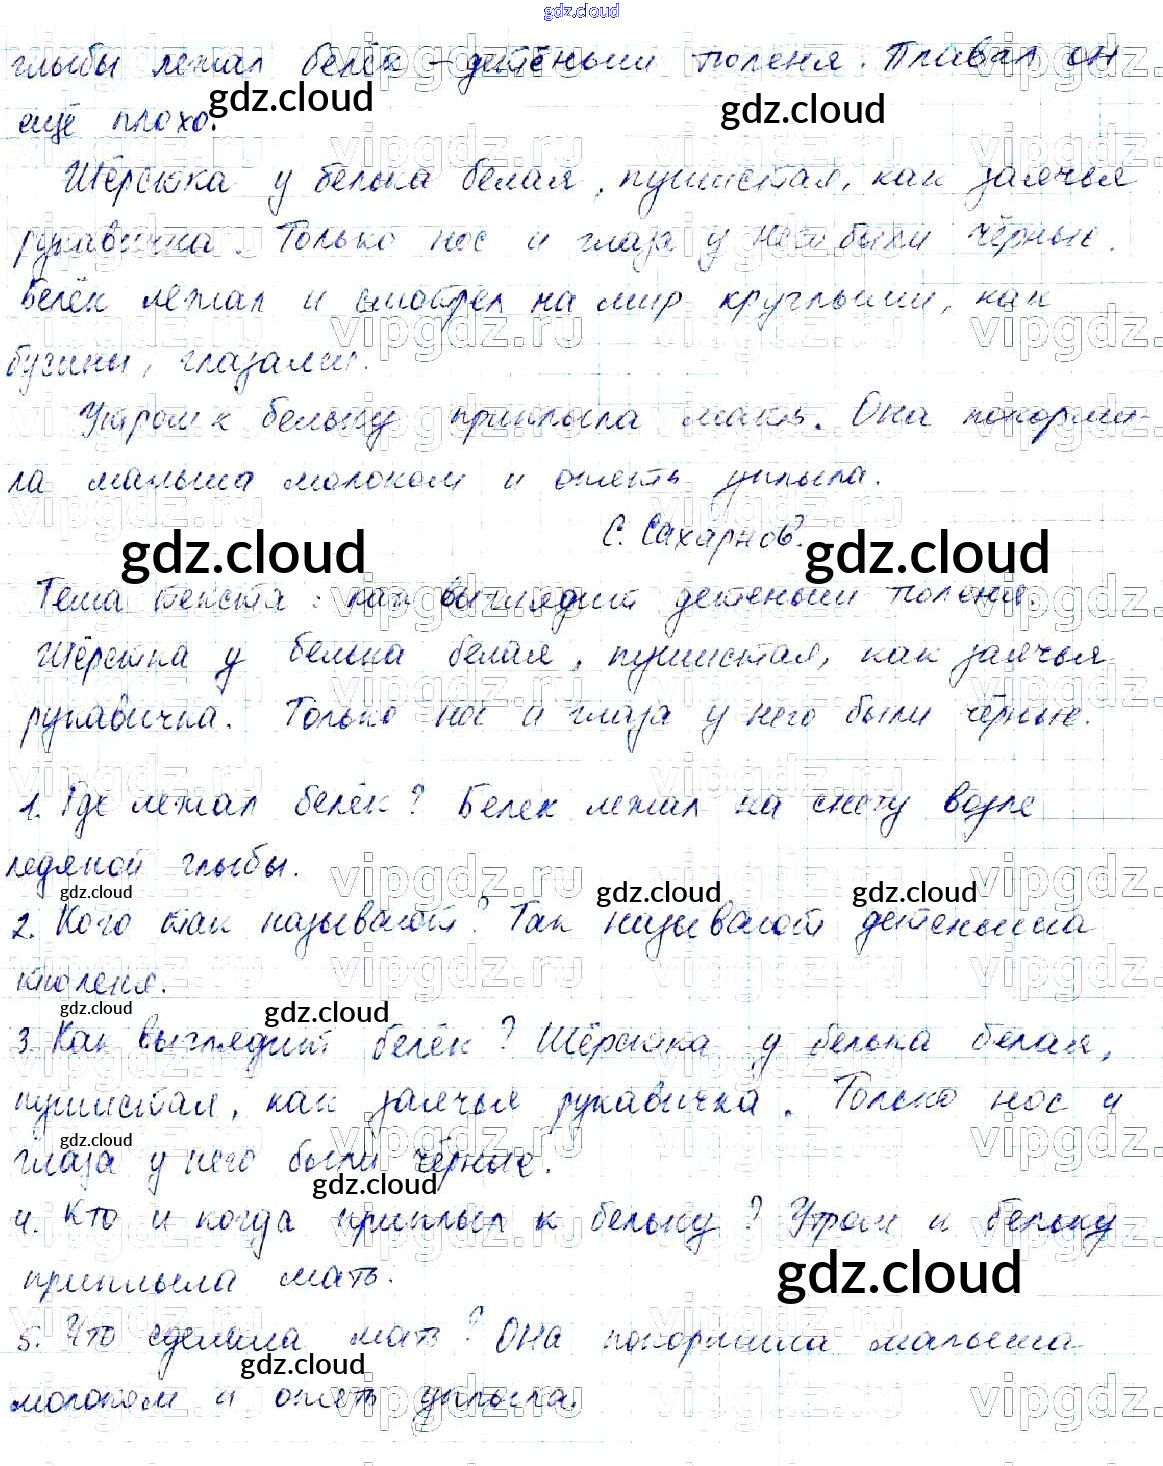 gdz.cloud
глыбы лежал белёк – детёныш тюленя. Плавал он
ещё плохо.
Шёрстка у белька белая, пушистая, как заячья
рукавичка. Только нос и глаза у него были чёрные.
Белёк лежал и смотрел на мир круглыми, как
бусины, глазами.
Утром к бельку приплыла мать. Она покорми-
ла малыша молоком и опять уплыла.
С. Сахарнов.
gdz.cloud gdz.cloud
Тема текста: как выглядит детёныш тюленя.
Шёрстка у белька белая, пушистая, как заячья
рукавичка. Только нос и глаза у него были чёрные.
1. Где лежал белёк? Белек лежал на снегу возле
ледяной глыбы.
2. Кого так называют? Так называют детеныша
тюленя.
3. Как выглядит белёк? Шёрстка у белька белая,
пушистая, как заячья рукавичка. Только нос и
глаза у него были чёрные.
4. Кто и когда приплыл к бельку? Утром к бельку
приплыла мать.
gdz.cloud
5. Что сделала мать? Она покормила малыша
молоком и опять уплыла.